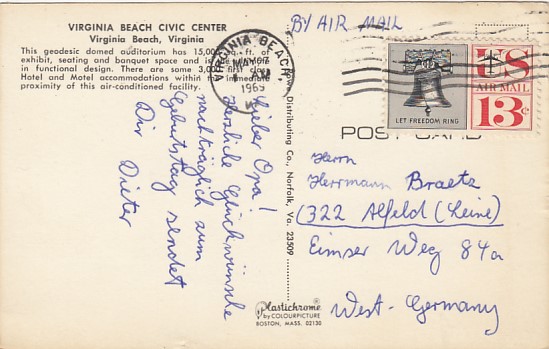 VIRGINIA BEACH CIVIC CENTER
Virginia Beach, Virginia
This geodesic domed auditorium has 15,000 sq. ft. of
exhibit, seating and banquet space and is the ultimate
in functional design. There are some 3,000 first class
Hotel and Motel accommodations within the immediate
proximity of this air-conditioned facility.
BY AIR MAIL
VIRGINIA BEACH
1969
LET FREEDOM RING
US
AIR MAIL
13c
POST CARD
Lieber Opa!
Herzliche Glückwünsche
nachträglich zum
Geburtstag sendet
Dir Dieter
Distributing Co., Norfolk, Va. 23509
Herrn
Herrmann Braetz
(322 Alfeld (Leine)
Eimser Weg 84a
West-Germany
Plastichrome
by COLOURPICTURE
BOSTON, MASS. 02130